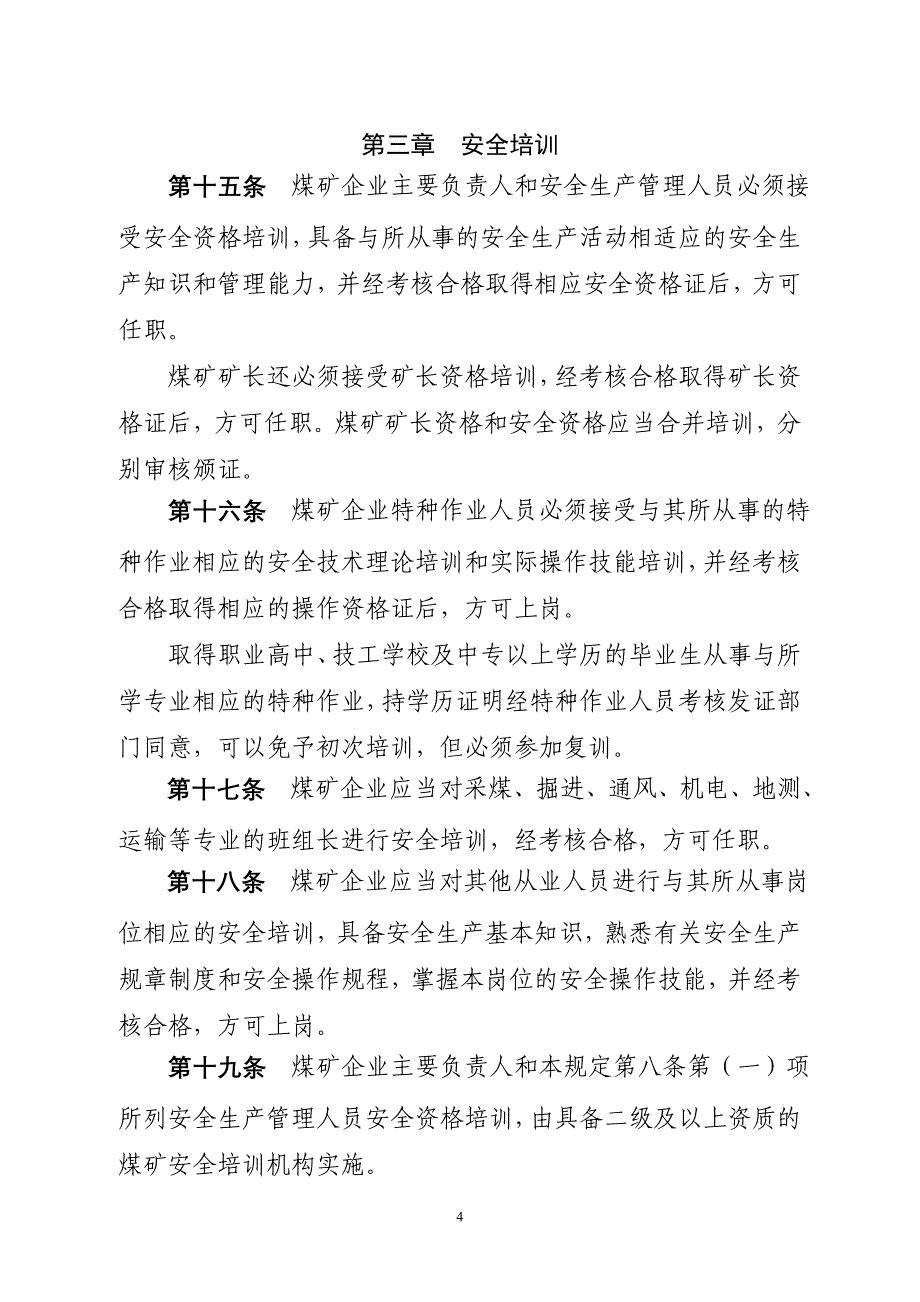 第三章　安全培训
第十五条　煤矿企业主要负责人和安全生产管理人员必须接
受安全资格培训，具备与所从事的安全生产活动相适应的安全生
产知识和管理能力，并经考核合格取得相应安全资格证后，方可
任职。
煤矿矿长还必须接受矿长资格培训，经考核合格取得矿长资
格证后，方可任职。煤矿矿长资格和安全资格应当合并培训，分
别审核颁证。
第十六条　煤矿企业特种作业人员必须接受与其所从事的特
种作业相应的安全技术理论培训和实际操作技能培训，并经考核
合格取得相应的操作资格证后，方可上岗。
取得职业高中、技工学校及中专以上学历的毕业生从事与所
学专业相应的特种作业，持学历证明经特种作业人员考核发证部
门同意，可以免予初次培训，但必须参加复训。
第十七条　煤矿企业应当对采煤、掘进、通风、机电、地测、
运输等专业的班组长进行安全培训，经考核合格，方可任职。
第十八条　煤矿企业应当对其他从业人员进行与其所从事岗
位相应的安全培训，具备安全生产基本知识，熟悉有关安全生产
规章制度和安全操作规程，掌握本岗位的安全操作技能，并经考
核合格，方可上岗。
第十九条　煤矿企业主要负责人和本规定第八条第（一）项
所列安全生产管理人员安全资格培训，由具备二级及以上资质的
煤矿安全培训机构实施。
4